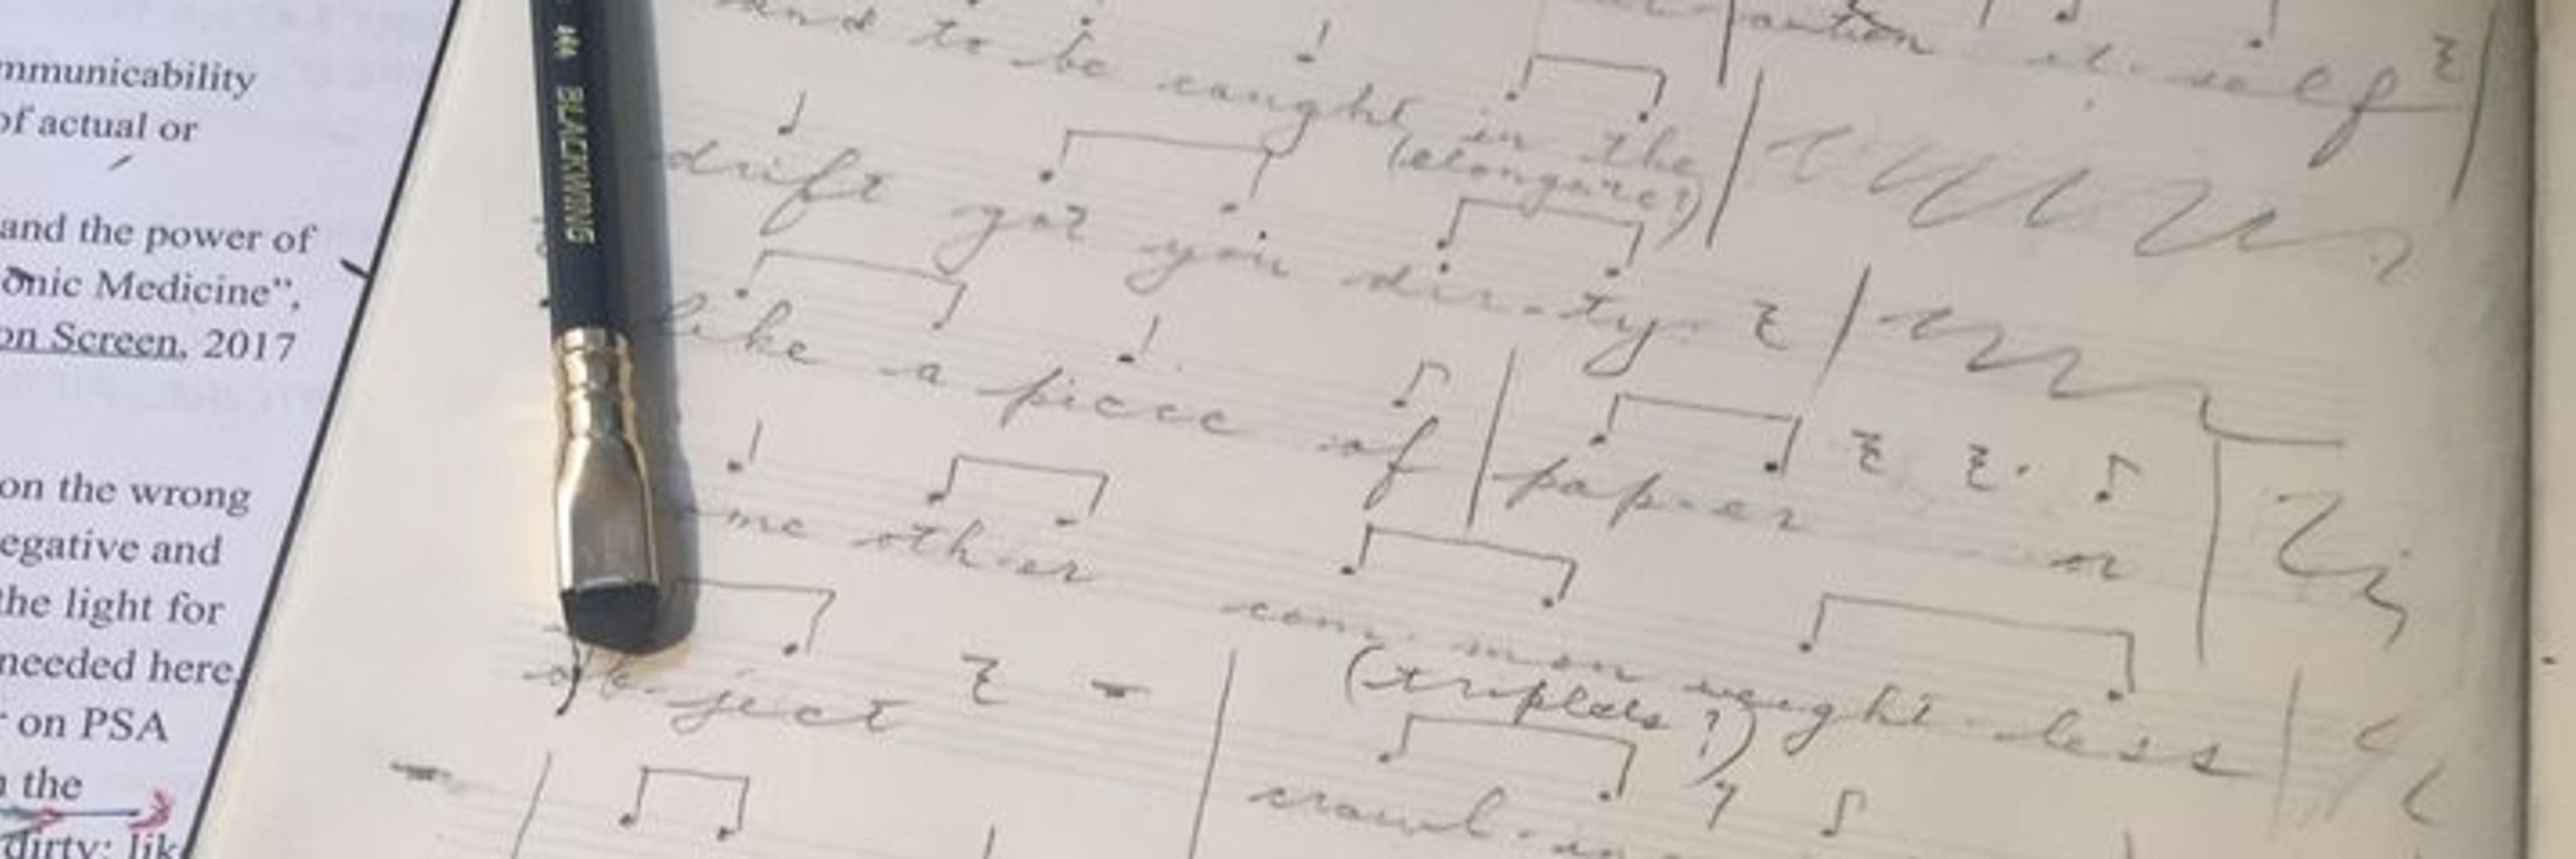 mmunicability
of actual or
and the power of
onic Medicine",
on Screen, 2017
on the wrong
egative and
the light for
needed here,
r on PSA
n the
dirty: lik
BLACKWING
and to be caught in the
it-self
(elongate?)
drift got you dir-ty
like a piece of pap-er or
ome oth-er com-mon weight-less
ob-ject
(triplets?)
crawl-in